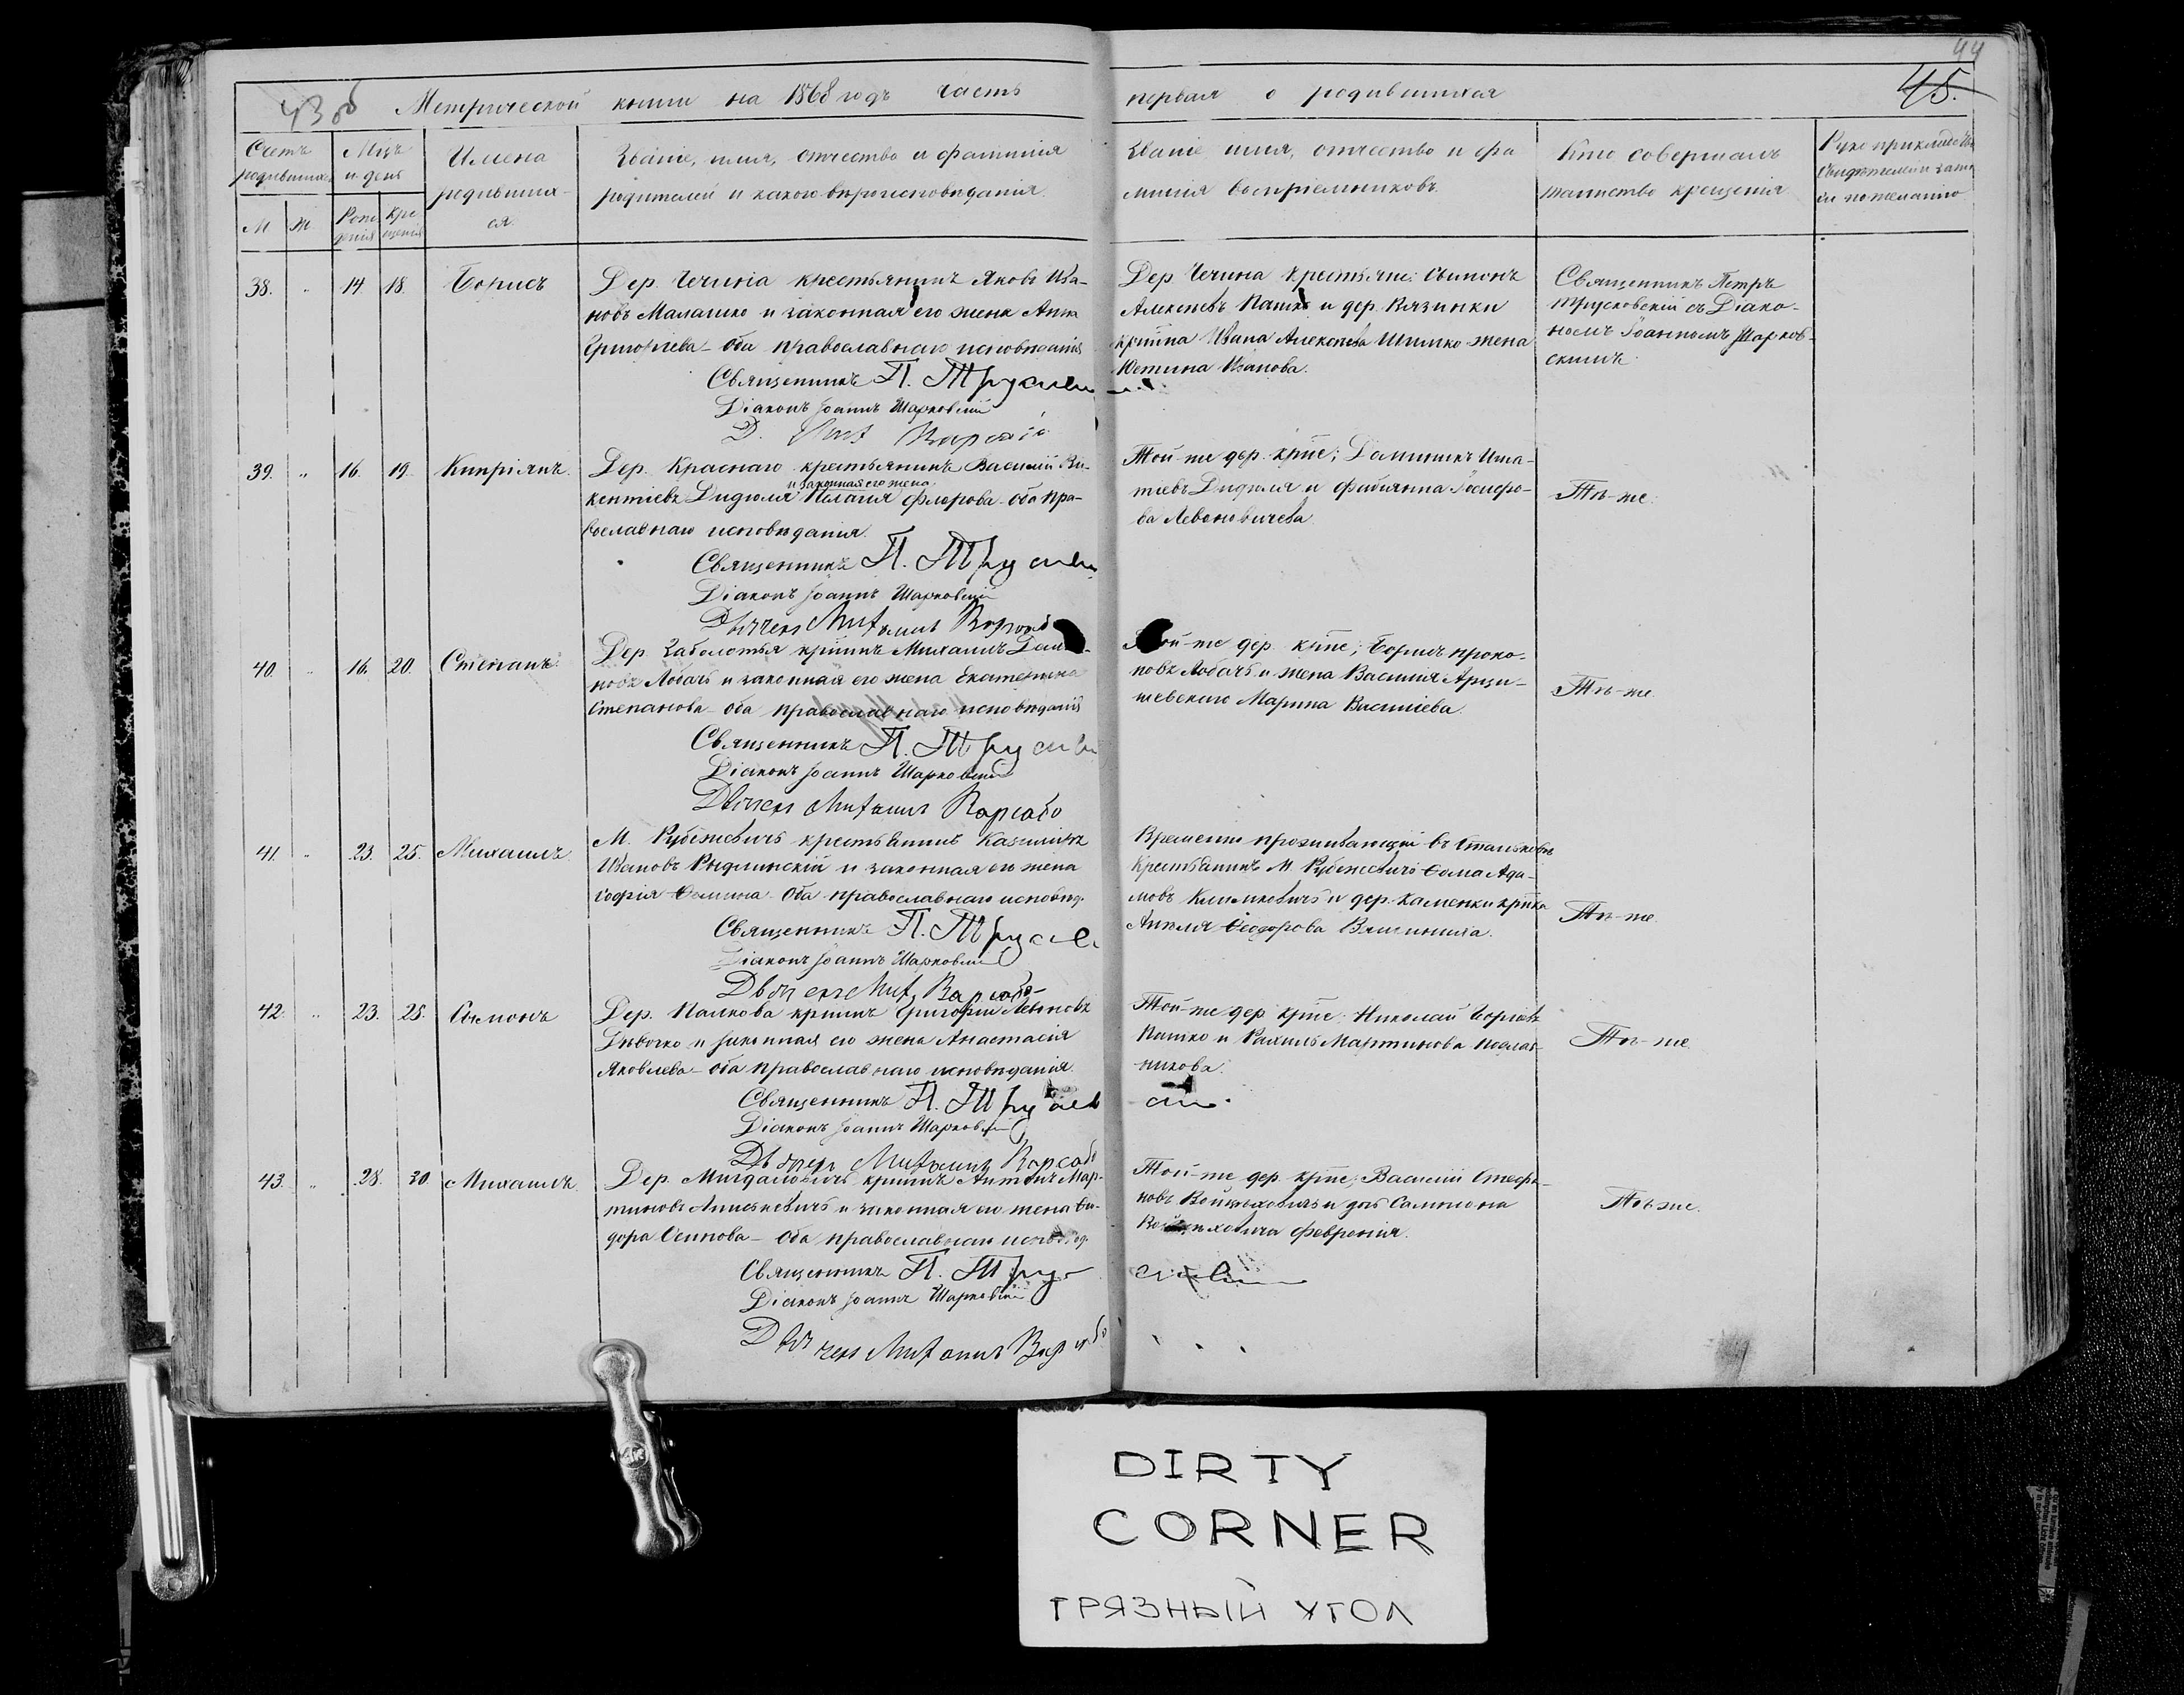 44
45.
43 об
Метрической книги на 1868 годъ часть
первая о родившихся
Счетъ родившихся
Мцъ и день
Имена родивших-ся.
Званіе, имя, отчество и фамилія
родителей и какого вѣроисповѣданія.
Званіе имя, отчество и фа
милія воспріемниковъ.
Кто совершалъ
таинство крещенія
Руко прикладство
свидѣтелей записи
по желанію
М Ж Рож денія Кре щенія
38. " 14. 18. Борисъ
Дер. Чечина крестьянинъ Яковъ Ива-
новъ Малашко и законная его жена Анна
Григорьева - оба православнаго исповѣданія
Священникъ П. Трусков
Діаконъ Іоаннъ Шарковскій
Дер. Чечина крестьяне: Сѵмонъ
Алексѣевъ Пашко и дер. Вязынки
крнина Ивана Алексѣева Шишко жена
Юстина Иванова.
Священникъ Петръ
Трусковскій съ Діако-
номъ Іоанномъ Шарков-
скимъ.
39. " 16. 19. Кипріянъ.
Дер. Краснаго крестьянинъ Василій Ви-
и законная его жена
кентіевъ Дидюля Пелагія Флорова - оба пра-
вославнаго исповѣданія.
Священникъ П. Трусков
Діаконъ Іоаннъ Шарковскій
Той-же дер. крне; Доминикъ Игна-
тіевъ Дидюля и Фабіянна Іосифо-
ва Левоновичева
Тѣ-же.
40. " 16. 20. Степанъ.
Дер. Заболотья крнинъ Михаилъ
новъ Лобачъ и законная его жена Екатерина
Степанова - оба православнаго исповѣданія
Священникъ П. Трусков
Діаконъ Іоаннъ Шарковскій
Той-же дер. крне; Борисъ Проко-
повъ Лобачъ и жена Василія Арци-
шевскаго Марина Васильева.
Тѣ-же.
41. " 23. 25. Михаилъ.
М. Рубежевичъ крестьянинъ Казимиръ
Ивановъ Рыдлинскій и законная его жена
Софія Ѳомина - оба православнаго исповѣд.
Священникъ П. Трусков
Діаконъ Іоаннъ Шарковскій
Временно проживающій въ Станьковѣ
Крестьянинъ М. Рубежевичъ Ѳома Ада-
мовъ Климковичъ и дер. Каменки крнка
Анеля Ѳеодорова
Тѣ-же.
42. " 23. 25. Сѵмонъ
Дер. Полкова крнинъ Григорій Леоновъ
Дѣвочко и законная его жена Анастасія
Яковлева - оба православнаго исповѣданія.
Священникъ П. Трусков
Діаконъ Іоаннъ Шарковскій
Той-же дер. крне: Николай Георгіевъ
Пашко и Рахиль Мартинова
никова.
Тѣ-же
43. " 28. 30. Михаилъ.
Дер. Мигдаловичъ крнинъ Антонъ Мар-
тиновъ Анискевичъ и законная его жена Ѳе-
дора Осипова - оба православнаго исповѣд.
Священникъ П. Трусков
Діаконъ Іоаннъ Шарковскій
Той-же дер. крне; Василій Стефа-
новъ Войтеховичъ и дочь Самсона
Войтеховича Февронія.
Тѣ же.
DIRTY
CORNER
ГРЯЗНЫЙ УГОЛ